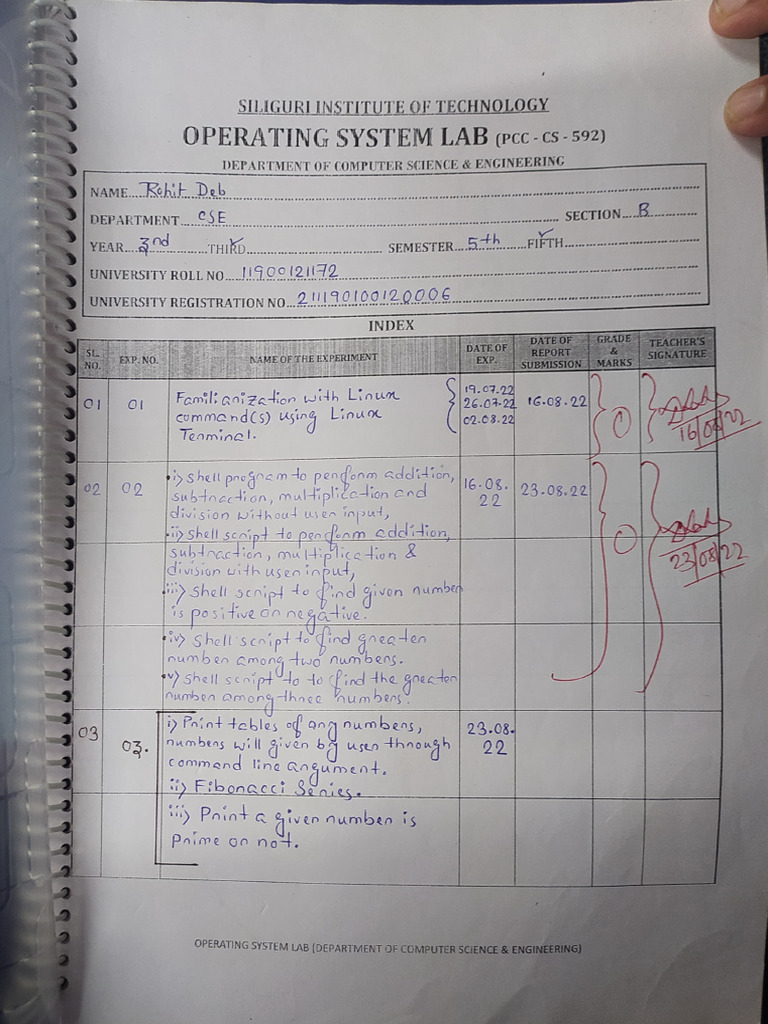 SILIGURI INSTITUTE OF TECHNOLOGY
OPERATING SYSTEM LAB (PCC - CS - 592)
DEPARTMENT OF COMPUTER SCIENCE & ENGINEERING
NAME Rohit Deb
DEPARTMENT CSE SECTION B
YEAR 3nd THIRD SEMESTER 5th FIFTH
UNIVERSITY ROLL NO 11900121172
UNIVERSITY REGISTRATION NO 211190100120006
INDEX
SL. NO. EXP. NO. NAME OF THE EXPERIMENT DATE OF EXP. DATE OF REPORT SUBMISSION GRADE & MARKS TEACHER'S SIGNATURE
01 01 Familianization with Linux 19.07.22
command(s) using Linux 26.07.22 16.08.22
Terminal. 02.08.22
16/08/22
02 02 i) Shell program to perform addition, 16.08.
subtraction, multiplication and 22 23.08.22
division without user input,
ii) shell script to perform addition,
subtraction, multiplication &
division with user input,
23/08/22
iii) Shell script to find given number
is positive or negative.
iv) Shell script to find greater
number among two numbers.
v) Shell script to to find the greater
number among three numbers.
03 03. i) Print tables of any numbers, 23.08.
numbers will given by user through 22
command line argument.
ii) Fibonacci Series.
iii) Print a given number is
prime or not.
OPERATING SYSTEM LAB (DEPARTMENT OF COMPUTER SCIENCE & ENGINEERING)